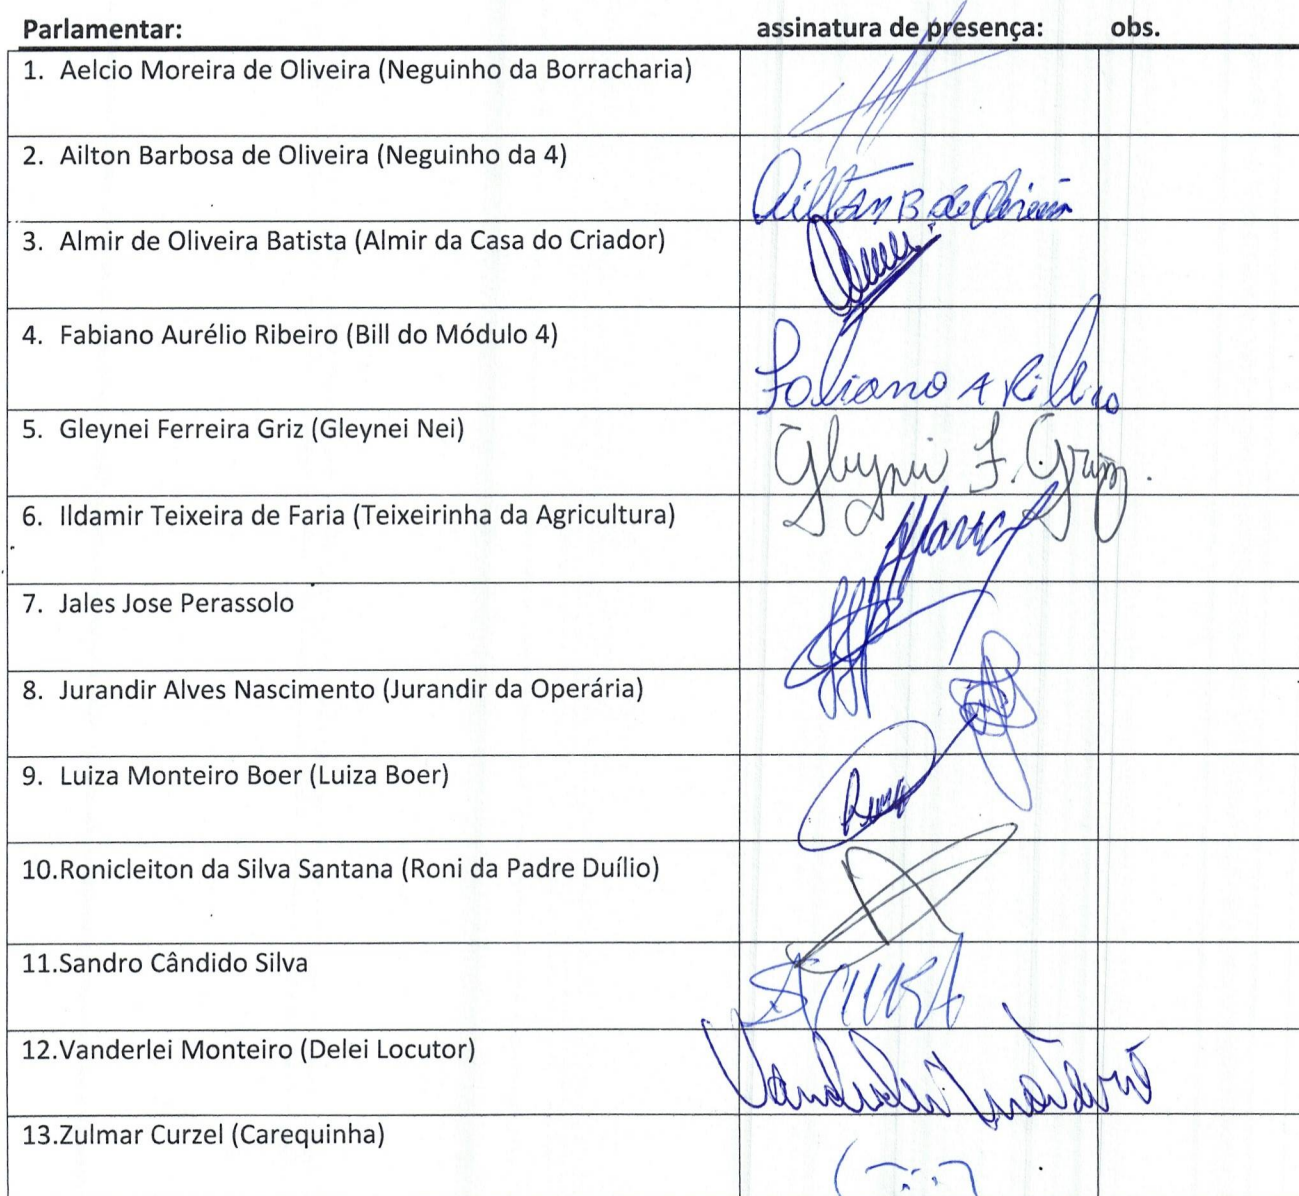 Parlamentar: assinatura de presença: obs.
1. Aelcio Moreira de Oliveira (Neguinho da Borracharia)
2. Ailton Barbosa de Oliveira (Neguinho da 4)
Ailton B de Oliveira
3. Almir de Oliveira Batista (Almir da Casa do Criador)
4. Fabiano Aurélio Ribeiro (Bill do Módulo 4)
Fabiano A Ribeiro
5. Gleynei Ferreira Griz (Gleynei Nei)
Gleynei F. Griz.
6. Ildamir Teixeira de Faria (Teixeirinha da Agricultura)
7. Jales Jose Perassolo
8. Jurandir Alves Nascimento (Jurandir da Operária)
9. Luiza Monteiro Boer (Luiza Boer)
10.Ronicleiton da Silva Santana (Roni da Padre Duílio)
11.Sandro Cândido Silva
12.Vanderlei Monteiro (Delei Locutor)
Vanderlei Monteiro
13.Zulmar Curzel (Carequinha)